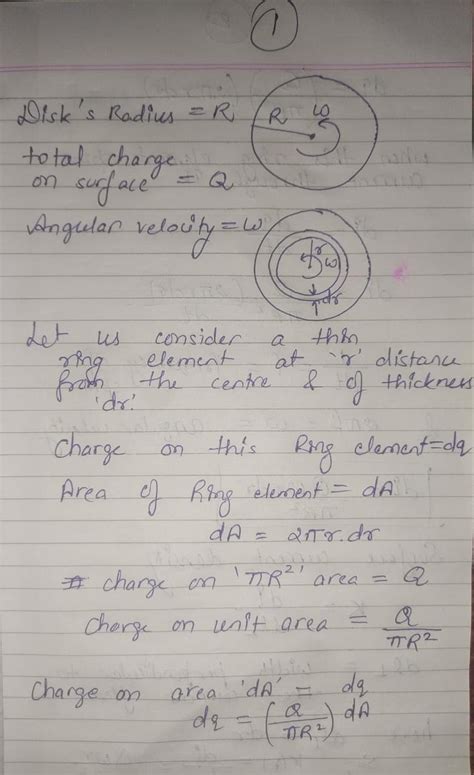 1
Disk's Radius = R
R ω
total charge
on surface = Q
Angular velocity = ω
r ω
dr
Let us consider a thin
ring element at 'r' distance
from the centre & of thickness
'dr'.
Charge on this Ring element = dq
Area of Ring element = dA
dA = 2πr.dr
charge on 'πR²' area = Q
Charge on unit area = Q/πR²
Charge on area 'dA' = dq
dq = (Q/πR²) dA